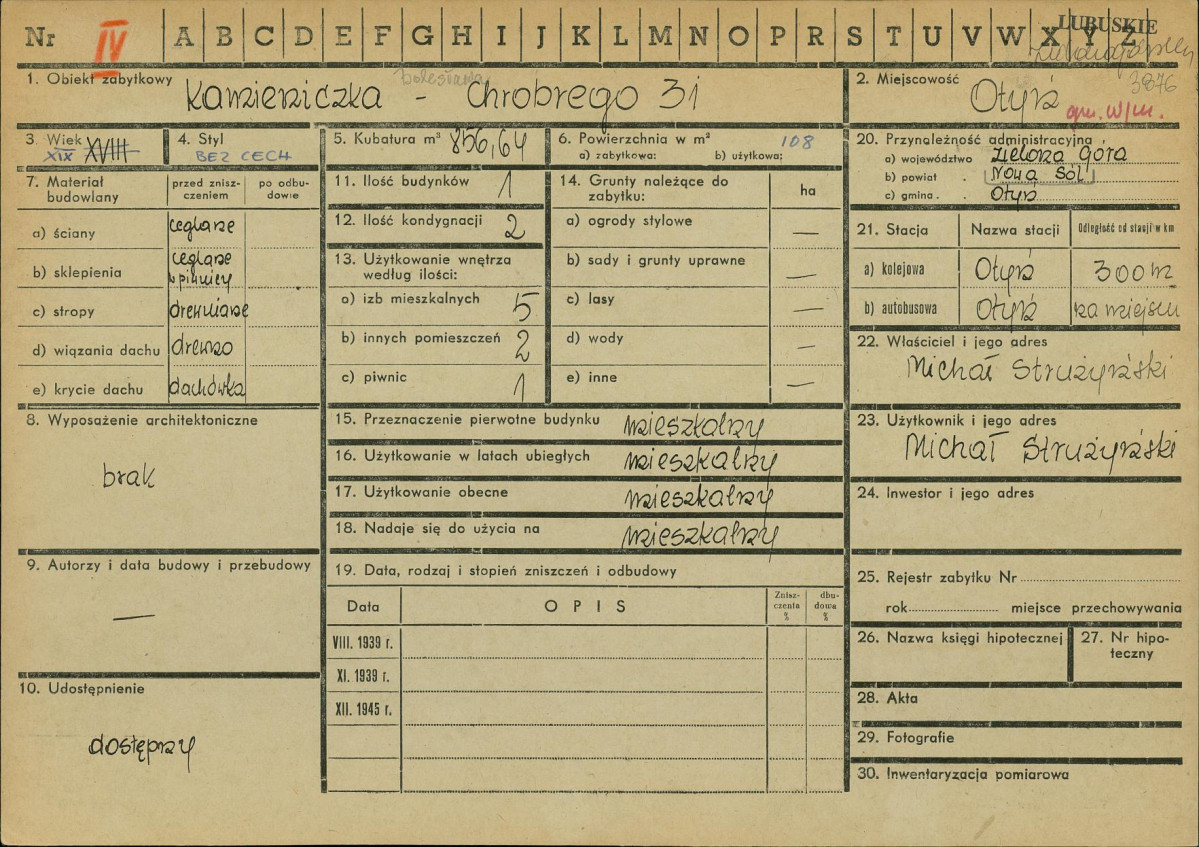 LUBUSKIE
Nr IV A B C D E F G H I J K L M N O P R S T U V W X Y Z
3876
1. Obiekt zabytkowy
Bolesława
Kamieniczka - Chrobrego 31
2. Miejscowość
Otyń
gm. w/m.
3. Wiek
XIX XVIII
4. Styl
BEZ CECH
5. Kubatura m³ 856,64
6. Powierzchnia w m² 108
a) zabytkowa: b) użytkowa:
7. Materiał budowlany
przed zniszczeniem
po odbudowie
a) ściany ceglane
b) sklepienia ceglane w piwnicy
c) stropy drewniane
d) wiązania dachu drewno
e) krycie dachu dachówka
8. Wyposażenie architektoniczne
brak
9. Autorzy i data budowy i przebudowy
—
10. Udostępnienie
dostępny
11. Ilość budynków 1
12. Ilość kondygnacji 2
13. Użytkowanie wnętrza według ilości:
a) izb mieszkalnych 5
b) innych pomieszczeń 2
c) piwnic 1
14. Grunty należące do zabytku: ha
a) ogrody stylowe —
b) sady i grunty uprawne —
c) lasy —
d) wody —
e) inne —
15. Przeznaczenie pierwotne budynku mieszkalny
16. Użytkowanie w latach ubiegłych mieszkalny
17. Użytkowanie obecne mieszkalny
18. Nadaje się do użycia na mieszkalny
19. Data, rodzaj i stopień zniszczeń i odbudowy
Data OPIS Zniszczenia % dbudowa %
VIII. 1939 r.
XI. 1939 r.
XII. 1945 r.
20. Przynależność administracyjna
a) województwo Zielona Góra
b) powiat . Nowa Sól
c) gmina . . Otyń
21. Stacja Nazwa stacji Odległość od stacji w km
a) kolejowa Otyń 300 m
b) autobusowa Otyń na miejscu
22. Właściciel i jego adres
Michał Strużyński
23. Użytkownik i jego adres
Michał Strużyński
24. Inwestor i jego adres
25. Rejestr zabytku Nr
rok miejsce przechowywania
26. Nazwa księgi hipotecznej
27. Nr hipoteczny
28. Akta
29. Fotografie
30. Inwentaryzacja pomiarowa